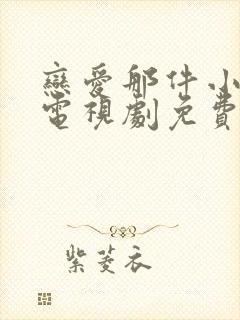 戀愛那件小
電視劇免費
紫菱衣